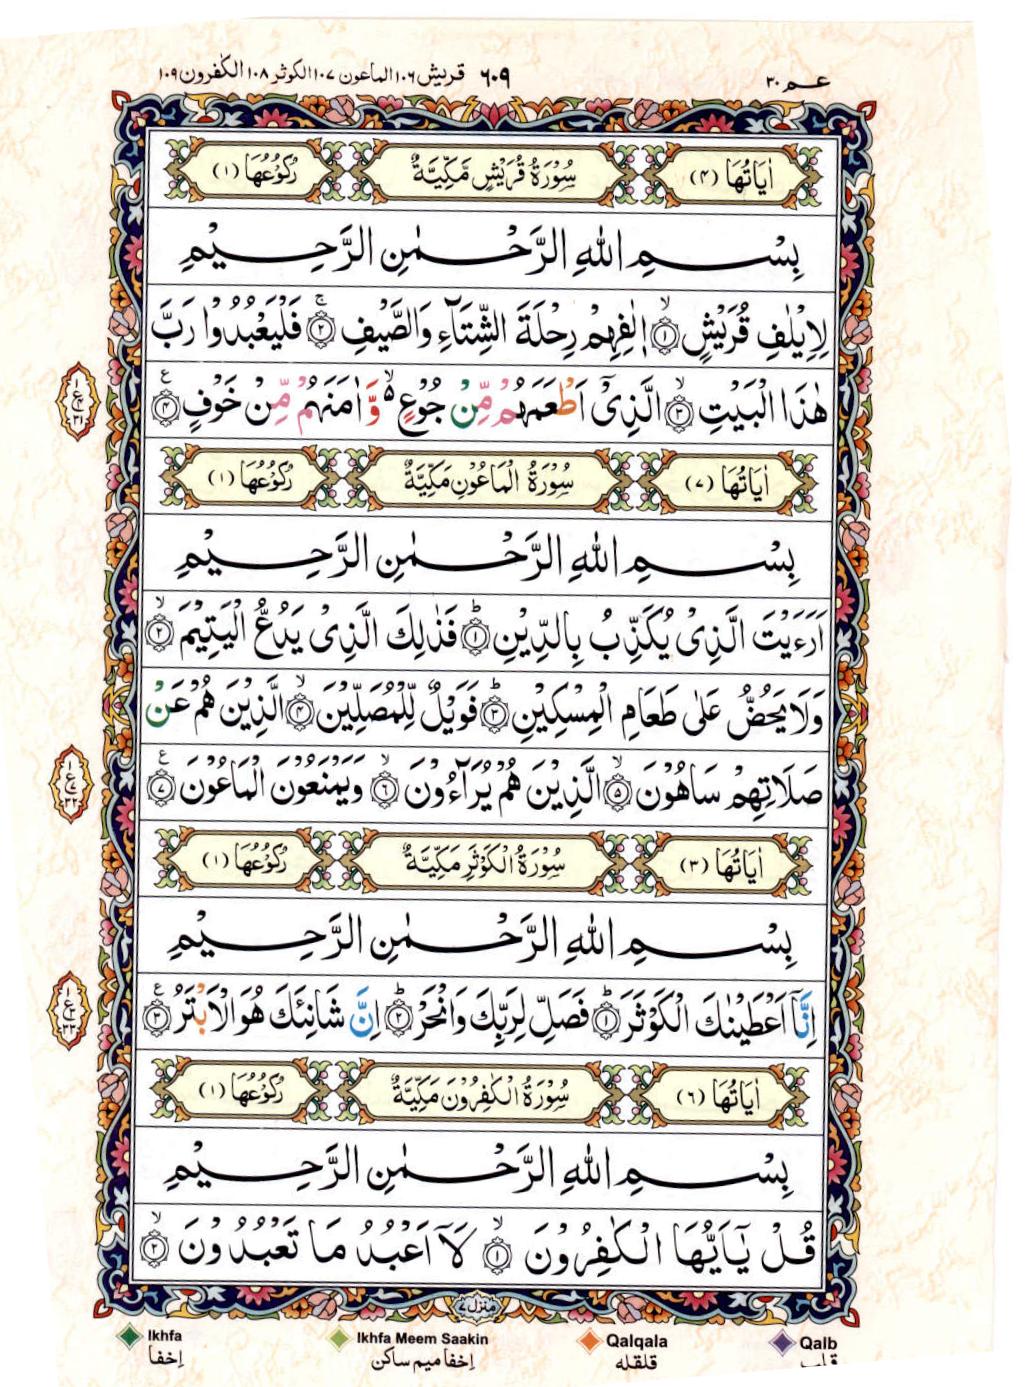 عـم ٣٠ ٦٠٩ قریش ١٠٦ الماعون ١٠٧ الکوثر ١٠٨ الکٰفرون ١٠٩
اٰیَاتُهَا (٤) سُوْرَةُ قُرَیْشٍ مَّکِّیَّةٌ رُکُوْعُهَا (١)
بِسْمِ اللهِ الرَّحْمٰنِ الرَّحِیْمِ
لِاِیْلٰفِ قُرَیْشٍ ۙ﴿١﴾ اٖلٰفِهِمْ رِحْلَةَ الشِّتَآءِ وَالصَّیْفِ ۚ﴿٢﴾ فَلْیَعْبُدُوْا رَبَّ
هٰذَا الْبَیْتِ ۙ﴿٣﴾ الَّذِیْۤ اَطْعَمَهُمْ مِّنْ جُوْعٍ ۙ۬ وَّاٰمَنَهُمْ مِّنْ خَوْفٍ ﴿٤﴾ ع
١ ع ٣١
اٰیَاتُهَا (٧) سُوْرَةُ الْمَاعُوْنِ مَکِّیَّةٌ رُکُوْعُهَا (١)
بِسْمِ اللهِ الرَّحْمٰنِ الرَّحِیْمِ
اَرَءَیْتَ الَّذِیْ یُکَذِّبُ بِالدِّیْنِ ؕ﴿١﴾ فَذٰلِكَ الَّذِیْ یَدُعُّ الْیَتِیْمَ ۙ﴿٢﴾
وَلَا یَحُضُّ عَلٰی طَعَامِ الْمِسْکِیْنِ ؕ﴿٣﴾ فَوَیْلٌ لِّلْمُصَلِّیْنَ ۙ﴿٤﴾ الَّذِیْنَ هُمْ عَنْ
صَلَاتِهِمْ سَاهُوْنَ ۙ﴿٥﴾ الَّذِیْنَ هُمْ یُرَآءُوْنَ ۙ﴿٦﴾ وَیَمْنَعُوْنَ الْمَاعُوْنَ ﴿٧﴾ ع
١ ع ٧ ٣٢
اٰیَاتُهَا (٣) سُوْرَةُ الْکَوْثَرِ مَکِّیَّةٌ رُکُوْعُهَا (١)
بِسْمِ اللهِ الرَّحْمٰنِ الرَّحِیْمِ
اِنَّاۤ اَعْطَیْنٰكَ الْکَوْثَرَ ؕ﴿١﴾ فَصَلِّ لِرَبِّكَ وَانْحَرْ ؕ﴿٢﴾ اِنَّ شَانِئَكَ هُوَ الْاَبْتَرُ ﴿٣﴾ ع
١ ع ٣ ٣٣
اٰیَاتُهَا (٦) سُوْرَةُ الْکٰفِرُوْنَ مَکِّیَّةٌ رُکُوْعُهَا (١)
بِسْمِ اللهِ الرَّحْمٰنِ الرَّحِیْمِ
قُلْ یٰۤاَیُّهَا الْکٰفِرُوْنَ ۙ﴿١﴾ لَاۤ اَعْبُدُ مَا تَعْبُدُوْنَ ۙ﴿٢﴾
منزل ٧
Ikhfa Ikhfa Meem Saakin Qalqala Qalb
اِخفا اِخفا میم ساکن قلقله قلب